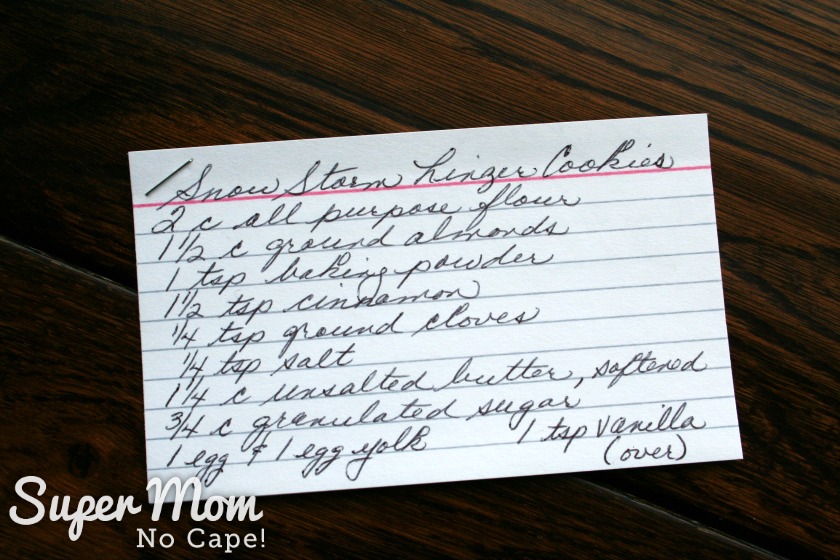 Snow Storm Linzer Cookies
2 c all purpose flour
1 1/2 c ground almonds
1 tsp baking powder
1 1/2 tsp cinnamon
1/4 tsp ground cloves
1/4 tsp salt
1 1/4 c unsalted butter, softened
3/4 c granulated sugar
1 egg & 1 egg yolk 1 tsp vanilla
(over)
Super Mom
No Cape!